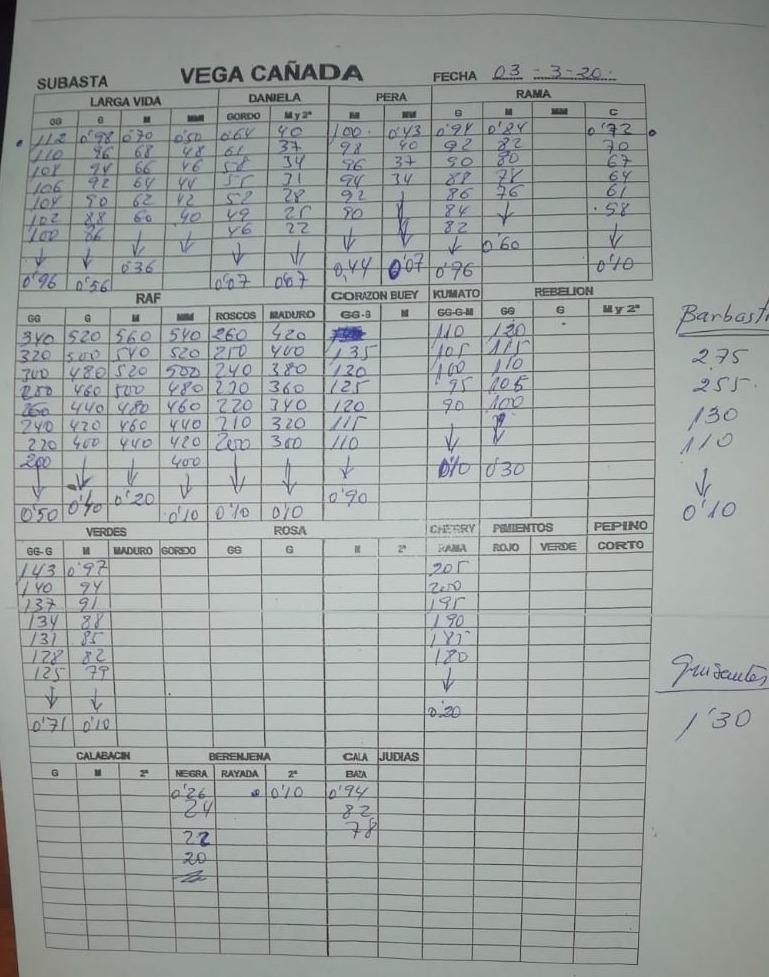 SUBASTA VEGA CAÑADA FECHA 03-3-20.
LARGA VIDA DANIELA PERA RAMA
GG G M MM GORDO M y 2ª M MM G M MM C
112 0'98 0'70 0'50 0'64 40 100 0'43 0'94 0'84 0'72
110 96 68 48 61 37 98 40 92 82 70
108 94 66 46 58 34 96 37 90 80 67
106 92 64 44 55 31 94 34 88 78 64
104 90 62 42 52 28 92 86 76 61
102 88 60 40 49 25 90 84 ↓ 58
100 86 ↓ ↓ 46 22 ↓ ↓ 82 ↓
↓ ↓ 0'36 ↓ ↓ ↓ 0'60
0'96 0'56 0'07 0'07 0,44 0'07 0'96 0'10
RAF CORAZON BUEY KUMATO REBELION
GG G M MM ROSCOS MADURO GG-G M GG-G-M GG G M y 2ª
340 520 560 540 260 420 110 120
320 500 540 520 250 400 135 105 115
300 480 520 500 240 380 120 100 110
280 460 500 480 230 360 125 95 105
260 440 480 460 220 340 120 90 100
240 420 460 440 210 320 115 ↓
220 400 440 420 200 300 110 ↓
200 ↓ ↓ 400 ↓ ↓ ↓ 0'10 0'30
↓ 0'40 0'20 ↓ 0'90
0'50 0'10 0'10 0'10
Barbast
2.75
255.
130
110
↓
0'10
VERDES ROSA CHERRY PIMIENTOS PEPINO
GG-G M MADURO GORDO GG G M 2ª RAMA ROJO VERDE CORTO
143 0'97 205
140 94 200
137 91 195
134 88 190
131 85 185
128 82 180
125 79 ↓
↓ ↓
0'71 0'10 0'20
Guisantes
1'30
CALABACIN BERENJENA CALA JUDIAS
G M 2ª NEGRA RAYADA 2ª BAZA
0'26 0'10 0'94
24 82
22 78
20